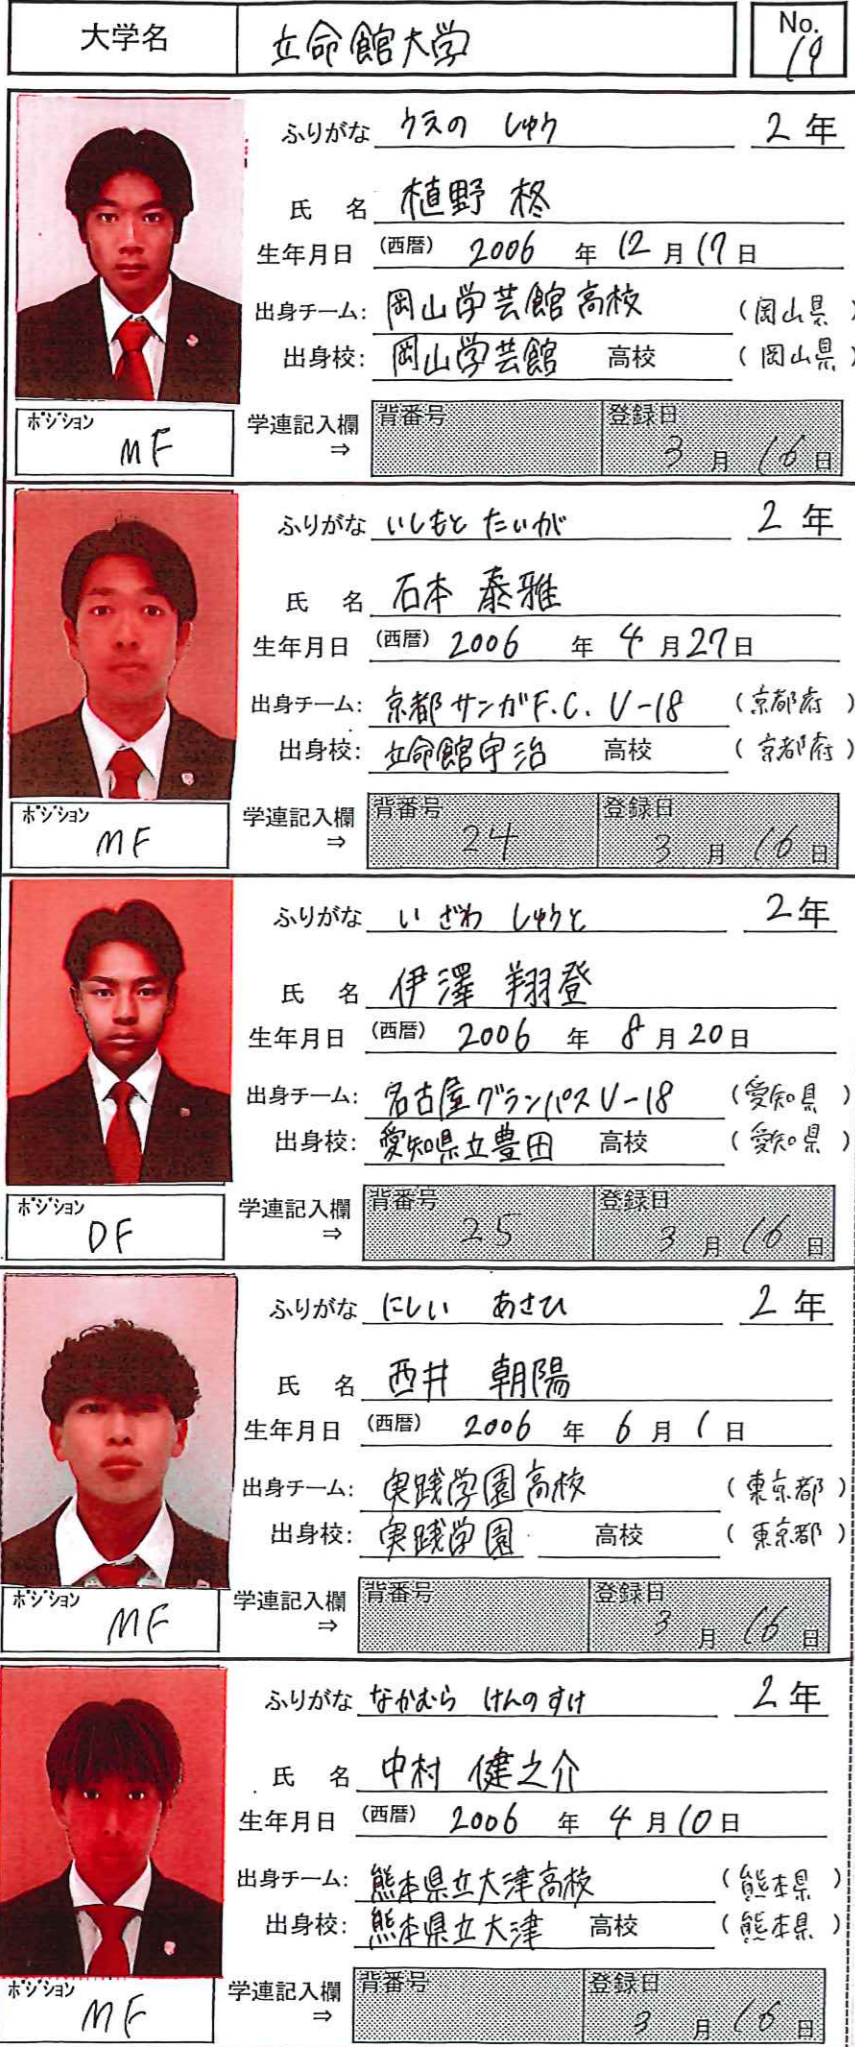 大学名 立命館大学 No. 19
ふりがな うえの しゅう 2年
氏 名 植野 柊
生年月日 (西暦) 2006 年 12 月 17 日
出身チーム: 岡山学芸館高校 (岡山県)
出身校: 岡山学芸館 高校 (岡山県)
ポジション MF 学連記入欄 ⇒ 背番号 登録日 3 月 16 日
ふりがな いしもと たいが 2年
氏 名 石本 泰雅
生年月日 (西暦) 2006 年 4 月 27 日
出身チーム: 京都サンガF.C. U-18 (京都府)
出身校: 立命館宇治 高校 (京都府)
ポジション MF 学連記入欄 ⇒ 背番号 24 登録日 3 月 16 日
ふりがな いざわ しゅうと 2年
氏 名 伊澤 翔登
生年月日 (西暦) 2006 年 8 月 20 日
出身チーム: 名古屋グランパスU-18 (愛知県)
出身校: 愛知県立豊田 高校 (愛知県)
ポジション DF 学連記入欄 ⇒ 背番号 25 登録日 3 月 16 日
ふりがな にしい あさひ 2年
氏 名 西井 朝陽
生年月日 (西暦) 2006 年 6 月 1 日
出身チーム: 実践学園高校 (東京都)
出身校: 実践学園 高校 (東京都)
ポジション MF 学連記入欄 ⇒ 背番号 登録日 3 月 16 日
ふりがな なかむら けんのすけ 2年
氏 名 中村 健之介
生年月日 (西暦) 2006 年 4 月 10 日
出身チーム: 熊本県立大津高校 (熊本県)
出身校: 熊本県立大津 高校 (熊本県)
ポジション MF 学連記入欄 ⇒ 背番号 登録日 3 月 16 日